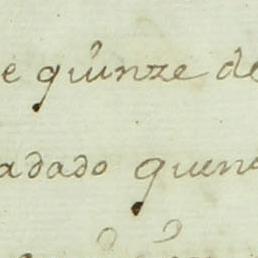 e quinze de
adado quen